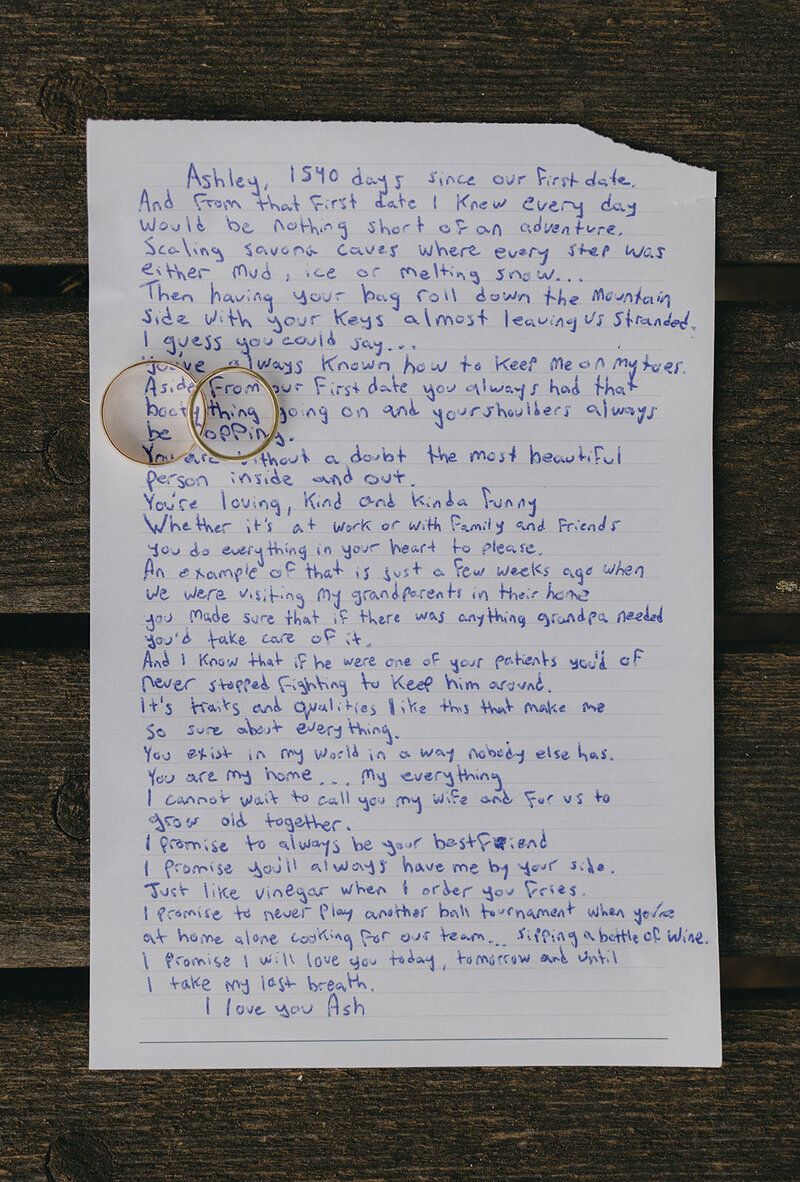 Ashley, 1540 days since our first date.
And from that first date I knew every day
would be nothing short of an adventure.
Scaling savona caves where every step was
either mud, ice or melting snow...
Then having your bag roll down the mountain
side with your keys almost leaving us stranded.
I guess you could say...
You've always known how to keep me on my toes.
Aside from our first date you always had that
booty thing going on and your shoulders always
be popping.
You are without a doubt the most beautiful
person inside and out.
You're loving, kind and kinda funny
Whether it's at work or with family and friends
you do everything in your heart to please.
An example of that is just a few weeks ago when
we were visiting my grandparents in their home
you made sure that if there was anything grandpa needed
you'd take care of it.
And I know that if he were one of your patients you'd of
never stopped fighting to keep him around.
It's traits and qualities like this that make me
so sure about everything.
You exist in my world in a way nobody else has.
You are my home... my everything
I cannot wait to call you my wife and for us to
grow old together.
I promise to always be your bestfriend
I promise you'll always have me by your side.
Just like vinegar when I order you fries.
I promise to never play another ball tournament when you're
at home alone cooking for our team... sipping a bottle of wine.
I promise I will love you today, tomorrow and until
I take my last breath.
I love you Ash